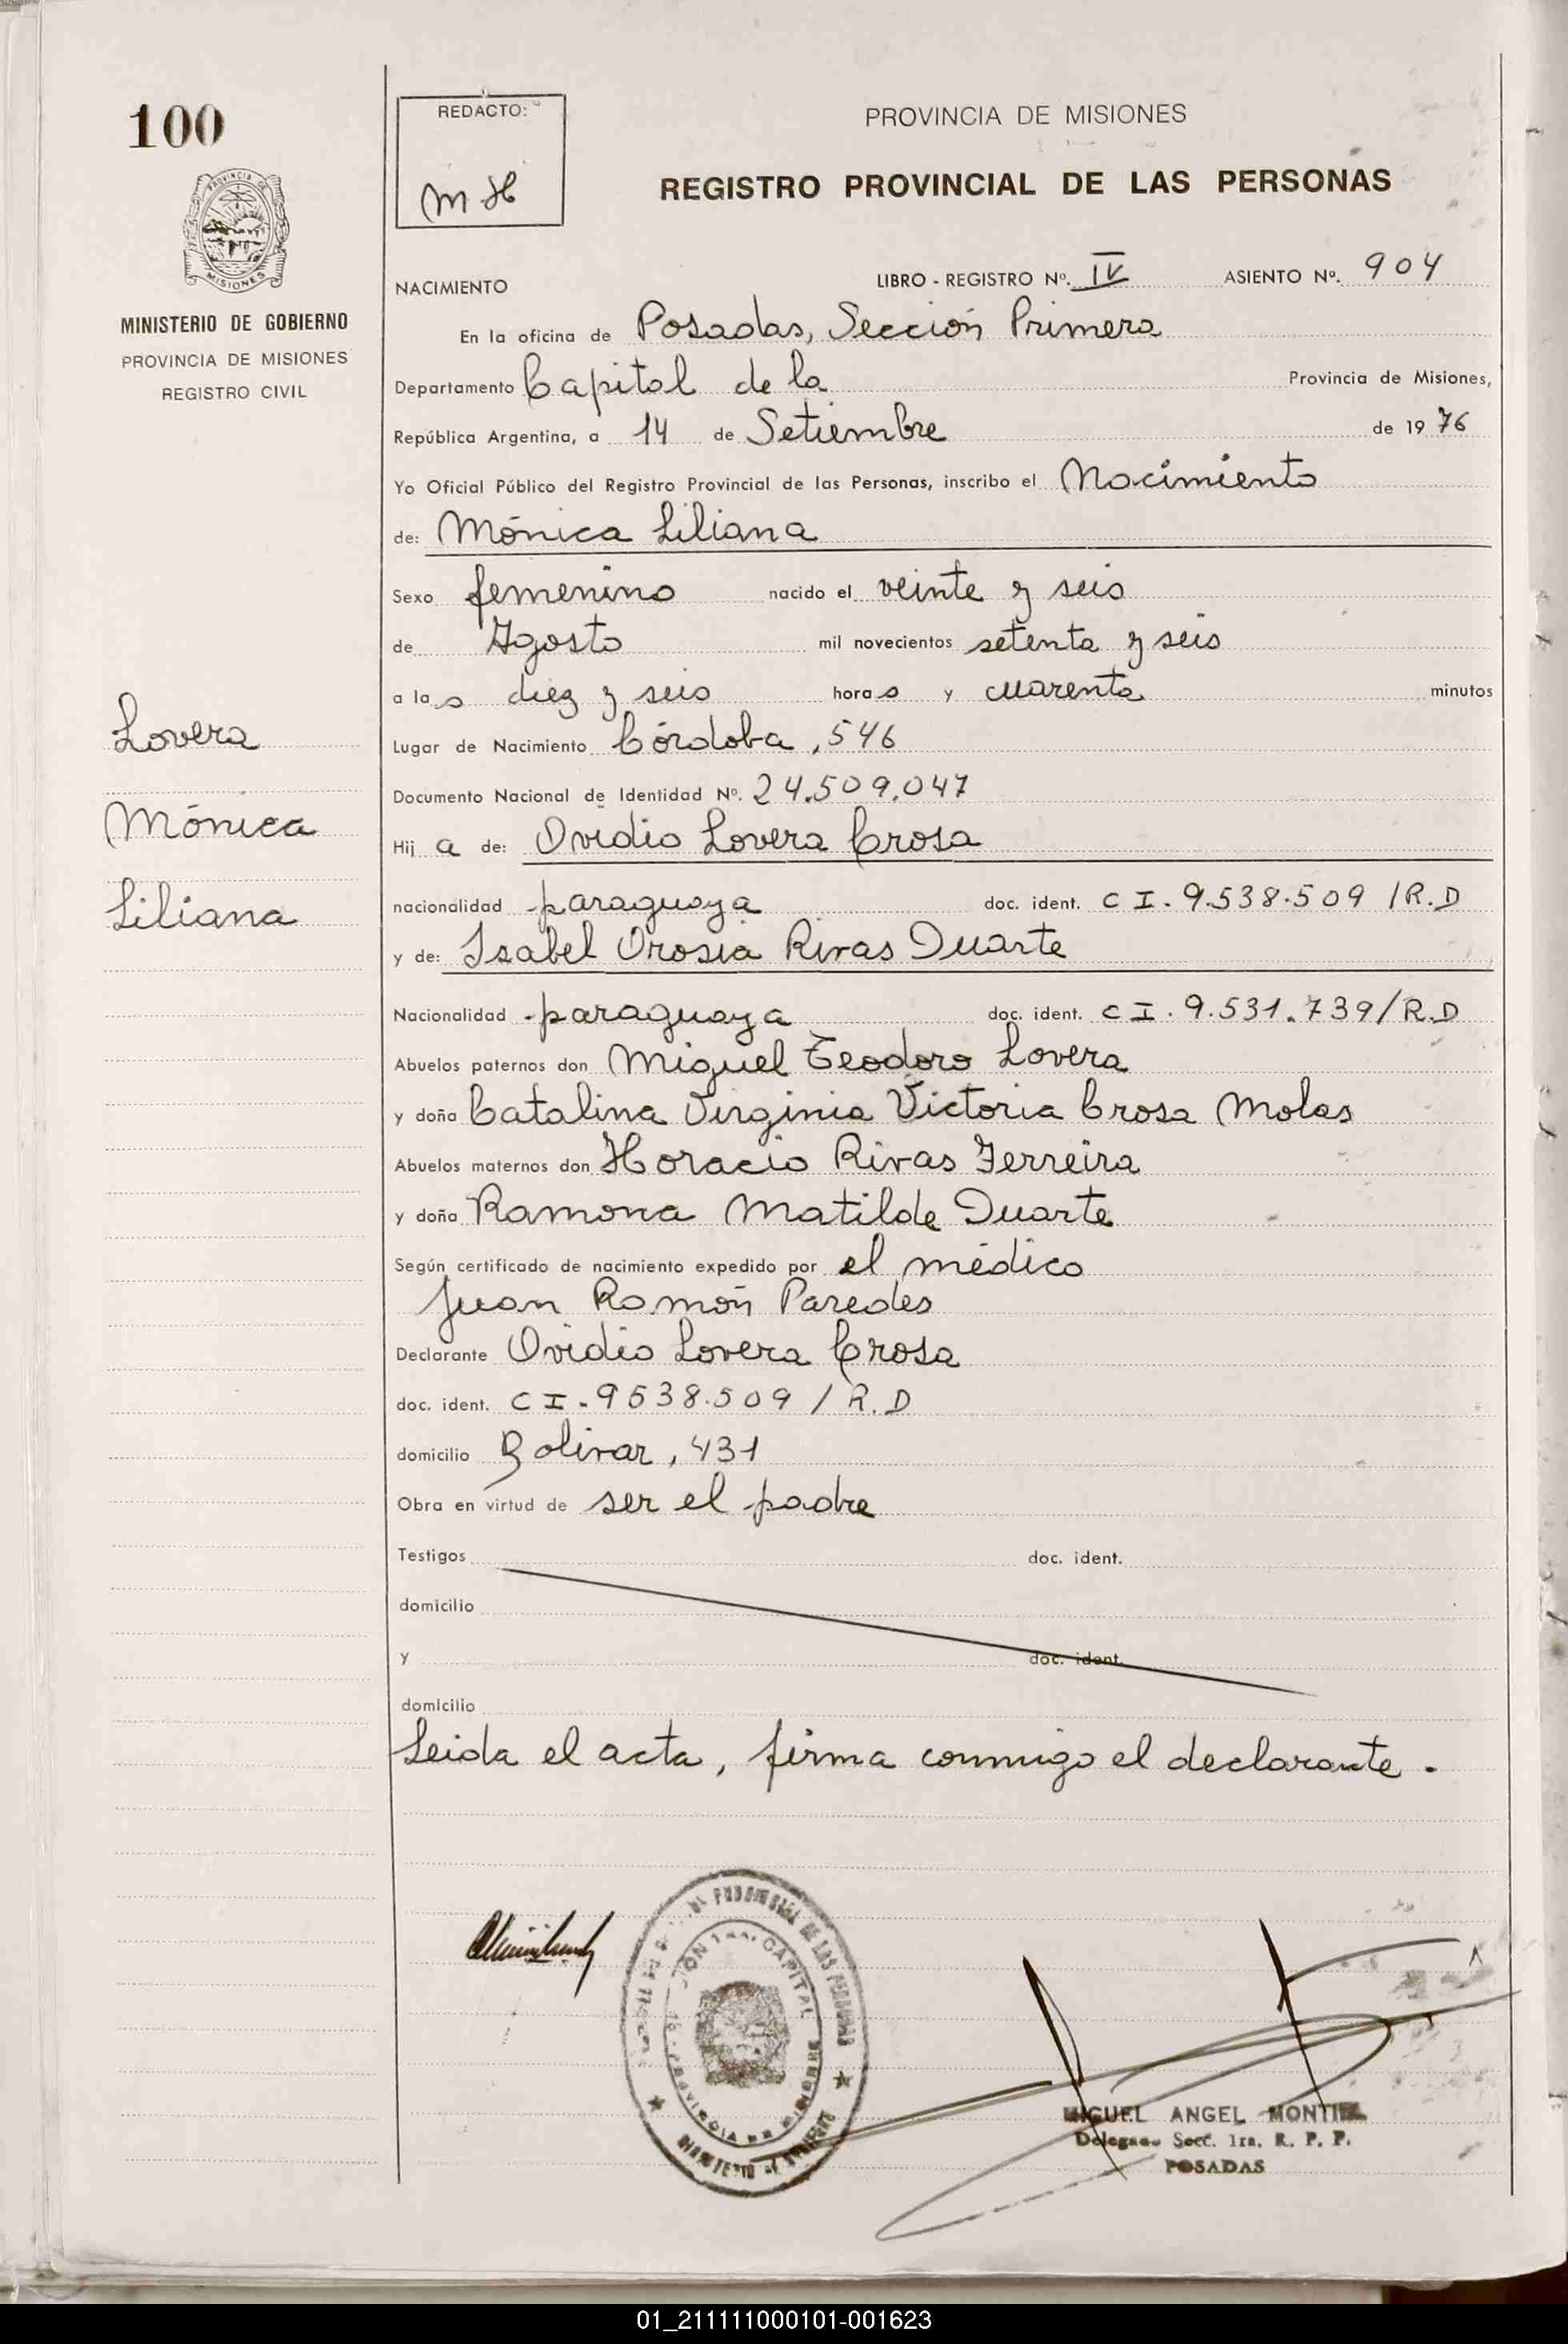 100
REDACTO:
MH
PROVINCIA DE MISIONES
REGISTRO PROVINCIAL DE LAS PERSONAS
PROVINCIA DE
MISIONES
MINISTERIO DE GOBIERNO
PROVINCIA DE MISIONES
REGISTRO CIVIL
NACIMIENTO LIBRO - REGISTRO Nº. IV ASIENTO Nº. 904
En la oficina de Posadas, Sección Primera
Departamento Capital de la Provincia de Misiones,
República Argentina, a 14 de Setiembre de 1976
Yo Oficial Público del Registro Provincial de las Personas, inscribo el Nacimiento
de: Mónica Liliana
Sexo femenino nacido el veinte y seis
de Agosto mil novecientos setenta y seis
a las diez y seis horas y cuarenta minutos
Lovera
Lugar de Nacimiento Córdoba, 546
Documento Nacional de Identidad Nº. 24.509.047
Mónica
Hija de: Ovidio Lovera Crosa
Liliana
nacionalidad paraguaya doc. ident. CI. 9.538.509 /R.D
y de: Isabel Orosia Rivas Duarte
Nacionalidad paraguaya doc. ident. CI. 9.531.739/R.D
Abuelos paternos don Miguel Teodoro Lovera
y doña Catalina Virginia Victoria Crosa Molas
Abuelos maternos don Horacio Rivas Ferreira
y doña Ramona Matilde Duarte
Según certificado de nacimiento expedido por el médico
Juan Ramón Paredes
Declarante Ovidio Lovera Crosa
doc. ident. CI. 9538.509 / R.D
domicilio Bolivar, 431
Obra en virtud de ser el padre
Testigos doc. ident.
domicilio
y doc. ident.
domicilio
Leida el acta, firma conmigo el declarante.
CAPITAL
MIGUEL ANGEL MONTIEL
Delegado Secc. 1ra. R. P. P.
POSADAS
01_211111000101-001623